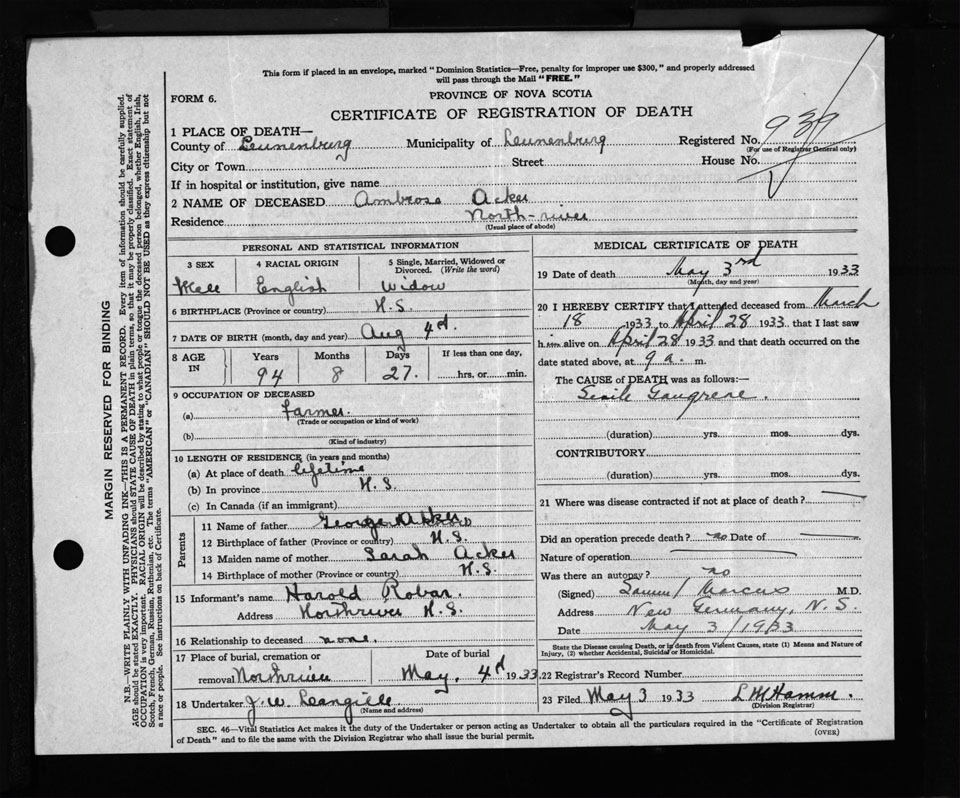 This form if placed in an envelope, marked "Dominion Statistics—Free, penalty for improper use $300," and properly addressed
will pass through the Mail "FREE."
FORM 6.
PROVINCE OF NOVA SCOTIA
CERTIFICATE OF REGISTRATION OF DEATH
1 PLACE OF DEATH—
County of Leunenburg Municipality of Leunenburg Registered No. 939
(For use of Registrar General only)
City or Town Street House No.
If in hospital or institution, give name
2 NAME OF DECEASED Ambrose Acker
Residence North-river
(Usual place of abode)
PERSONAL AND STATISTICAL INFORMATION
3 SEX 4 RACIAL ORIGIN 5 Single, Married, Widowed or
Divorced. (Write the word)
Male English Widow
6 BIRTHPLACE (Province or country) N.S.
7 DATE OF BIRTH (month, day and year) Aug 4d.
8 AGE IN Years Months Days If less than one day,
94 8 27. hrs. or min.
9 OCCUPATION OF DECEASED
(a) farmer.
(Trade or occupation or kind of work)
(b)
(Kind of industry)
10 LENGTH OF RESIDENCE (in years and months)
(a) At place of death lifetime
(b) In province N.S.
(c) In Canada (if an immigrant)
Parents
11 Name of father George Acker
12 Birthplace of father (Province or country) N.S.
13 Maiden name of mother Sarah Acker
14 Birthplace of mother (Province or country) N.S.
15 Informant's name Harold Robar
Address Northriver N.S.
16 Relationship to deceased none.
17 Place of burial, cremation or Date of burial
removal Northriver May, 4d 1933.
18 Undertaker J.W. Leangille
(Name and address)
MEDICAL CERTIFICATE OF DEATH
19 Date of death May 3rd 1933
(Month, day and year)
20 I HEREBY CERTIFY that I attended deceased from March
18 1933 to April 28 1933 that I last saw
him alive on April 28 1933 and that death occurred on the
date stated above, at 9 a. m.
The CAUSE OF DEATH was as follows:—
Senile Gangrene.
(duration) yrs. mos. dys.
CONTRIBUTORY
(duration) yrs. mos. dys.
21 Where was disease contracted if not at place of death?
Did an operation precede death? no Date of
Nature of operation
Was there an autopsy? no
(Signed) Samuel Marcus M.D.
Address New Germany, N.S.
Date May 3/1933
State the Disease causing Death, or in death from Violent Causes, state (1) Means and Nature of
Injury, (2) whether Accidental, Suicidal or Homicidal.
22 Registrar's Record Number
23 Filed May 3 1933 L M Hamm.
(Division Registrar)
SEC. 46—Vital Statistics Act makes it the duty of the Undertaker or person acting as Undertaker to obtain all the particulars required in the "Certificate of Registration
of Death" and to file the same with the Division Registrar who shall issue the burial permit.
(OVER)
MARGIN RESERVED FOR BINDING
N.B.—WRITE PLAINLY WITH UNFADING INK—THIS IS A PERMANENT RECORD. Every item of information should be carefully supplied.
AGE should be stated EXACTLY. PHYSICIANS should STATE CAUSE OF DEATH in plain terms, so that it may be properly classified. Exact statement of
OCCUPATION is very important. RACIAL ORIGIN will be described by stating to what people or tongue the deceased person belonged, whether English, Irish,
Scotch, French, German, Russian, Ruthenian, etc. The terms "AMERICAN" or "CANADIAN" SHOULD NOT BE USED as they express citizenship but not
a race or people. See instructions on back of Certificate.